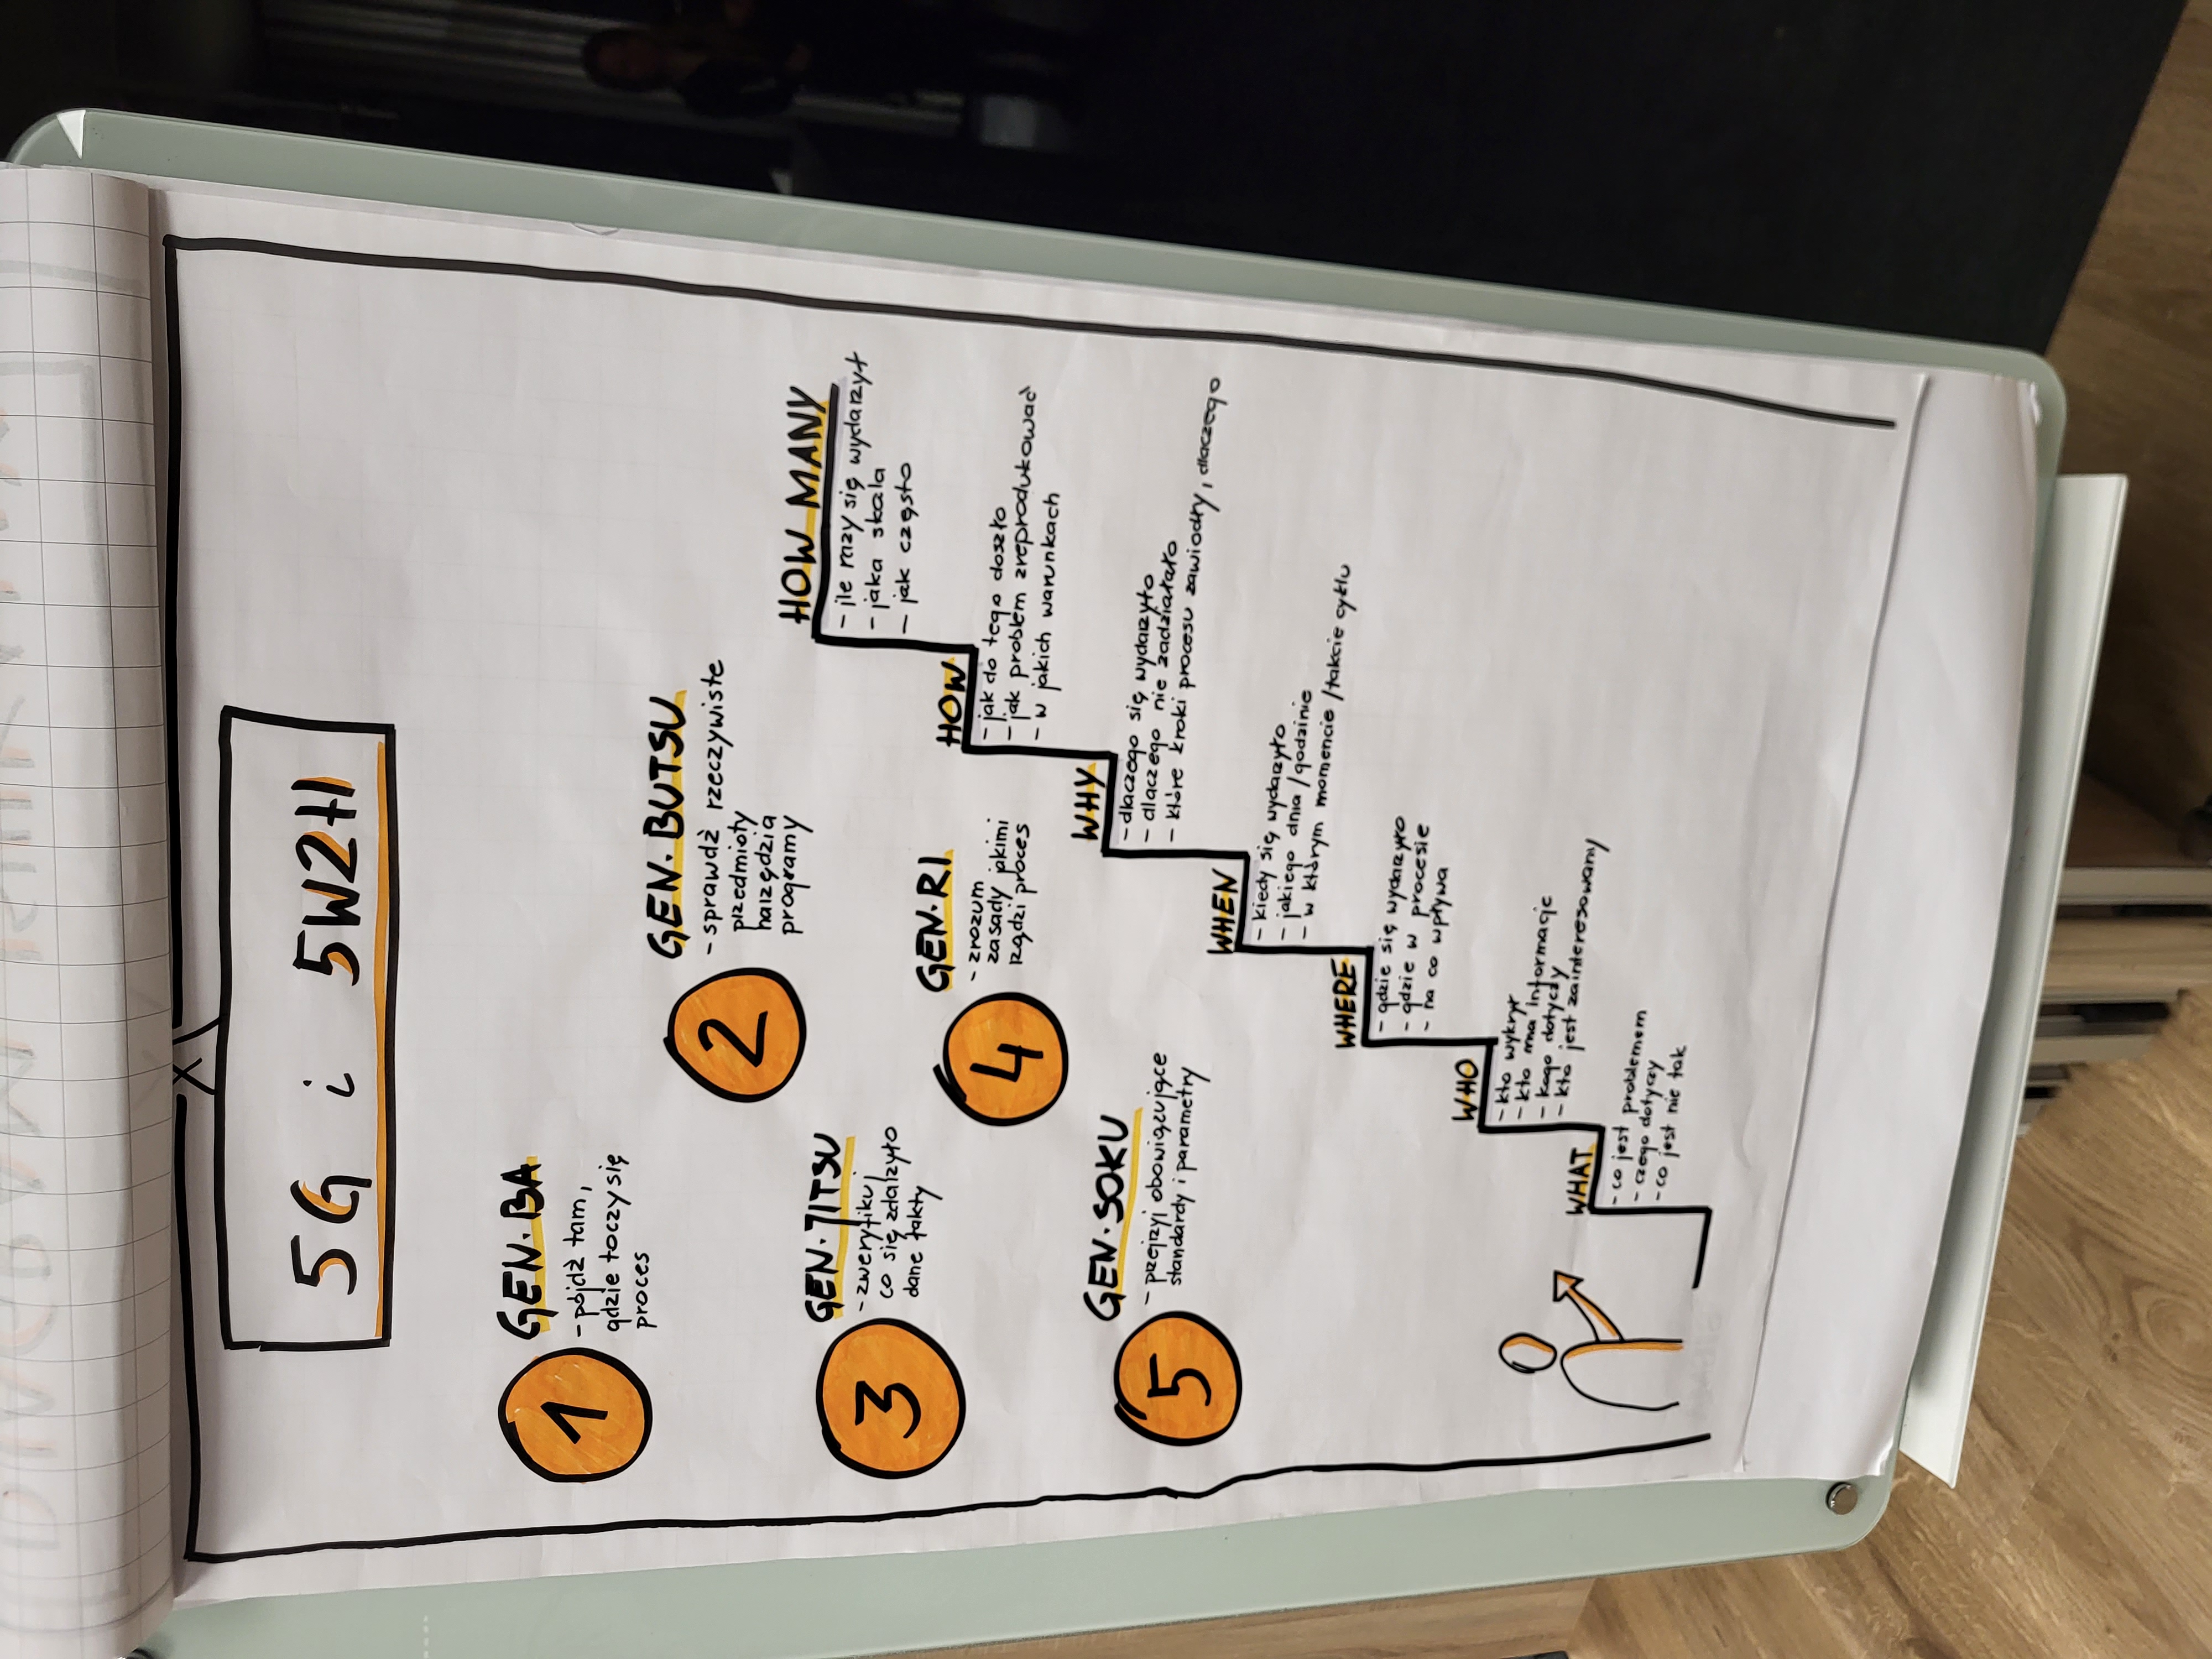 5G i 5W2H
1
GEN·BA
- pójdź tam,
gdzie toczy się
proces
2
GEN·BUTSU
- sprawdź rzeczywiste
przedmioty
narzędzia
programy
3
GEN·JITSU
- zweryfikuj
co się zdarzyło
dane fakty
4
GEN·RI
- zrozum
zasady jakimi
rządzi proces
5
GEN·SOKU
- przejrzyj obowiązujące
standardy i parametry
HOW MANY
- ile razy się wydarzył
- jaka skala
- jak często
HOW
- jak do tego doszło
- jak problem zreprodukować
- w jakich warunkach
WHY
- dlaczego się wydarzyło
- dlaczego nie zadziałało
- które kroki procesu zawiodły, dlaczego
WHEN
- kiedy się wydarzyło
- jakiego dnia / godzinie
- w którym momencie / takcie cyklu
WHERE
- gdzie się wydarzyło
- gdzie w procesie
- na co wpływa
WHO
- kto wykrył
- kto ma informacje
- kogo dotyczy
- kto jest zainteresowany
WHAT
- co jest problemem
- czego dotyczy
- co jest nie tak